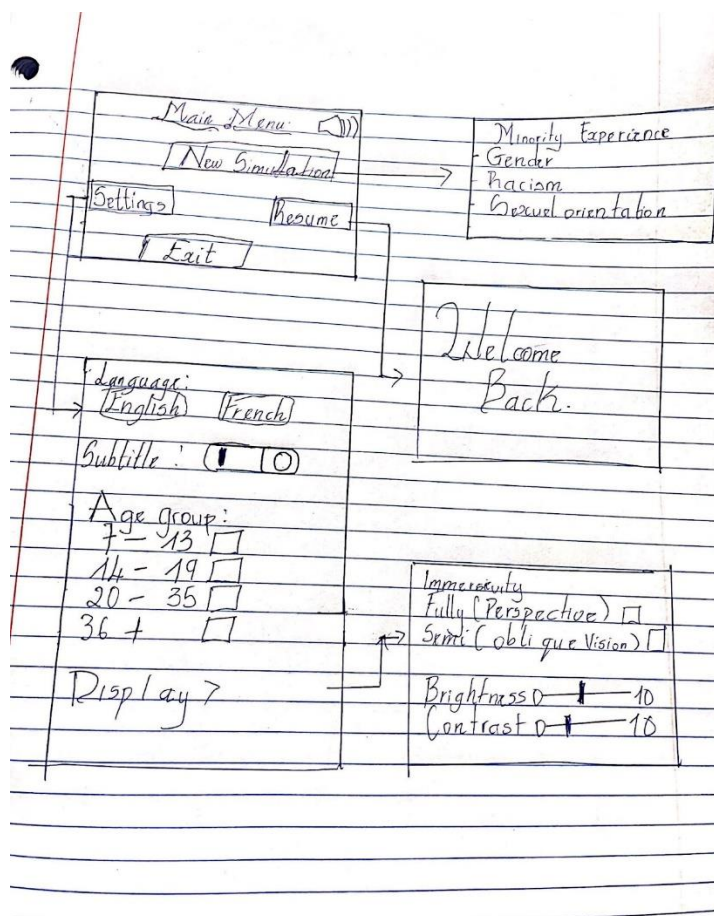 Main Menu
New Simulation
Settings
Resume
Exit
Minority Experience
- Gender
- Racism
- Sexuel orientation
Welcome
Back.
Language:
English French
Subtitle :
Age group:
7 - 13
14 - 19
20 - 35
36 +
Display >
Immersivity
Fully (Perspective)
Semi (oblique Vision)
Brightness 0 10
Contrast 0 10